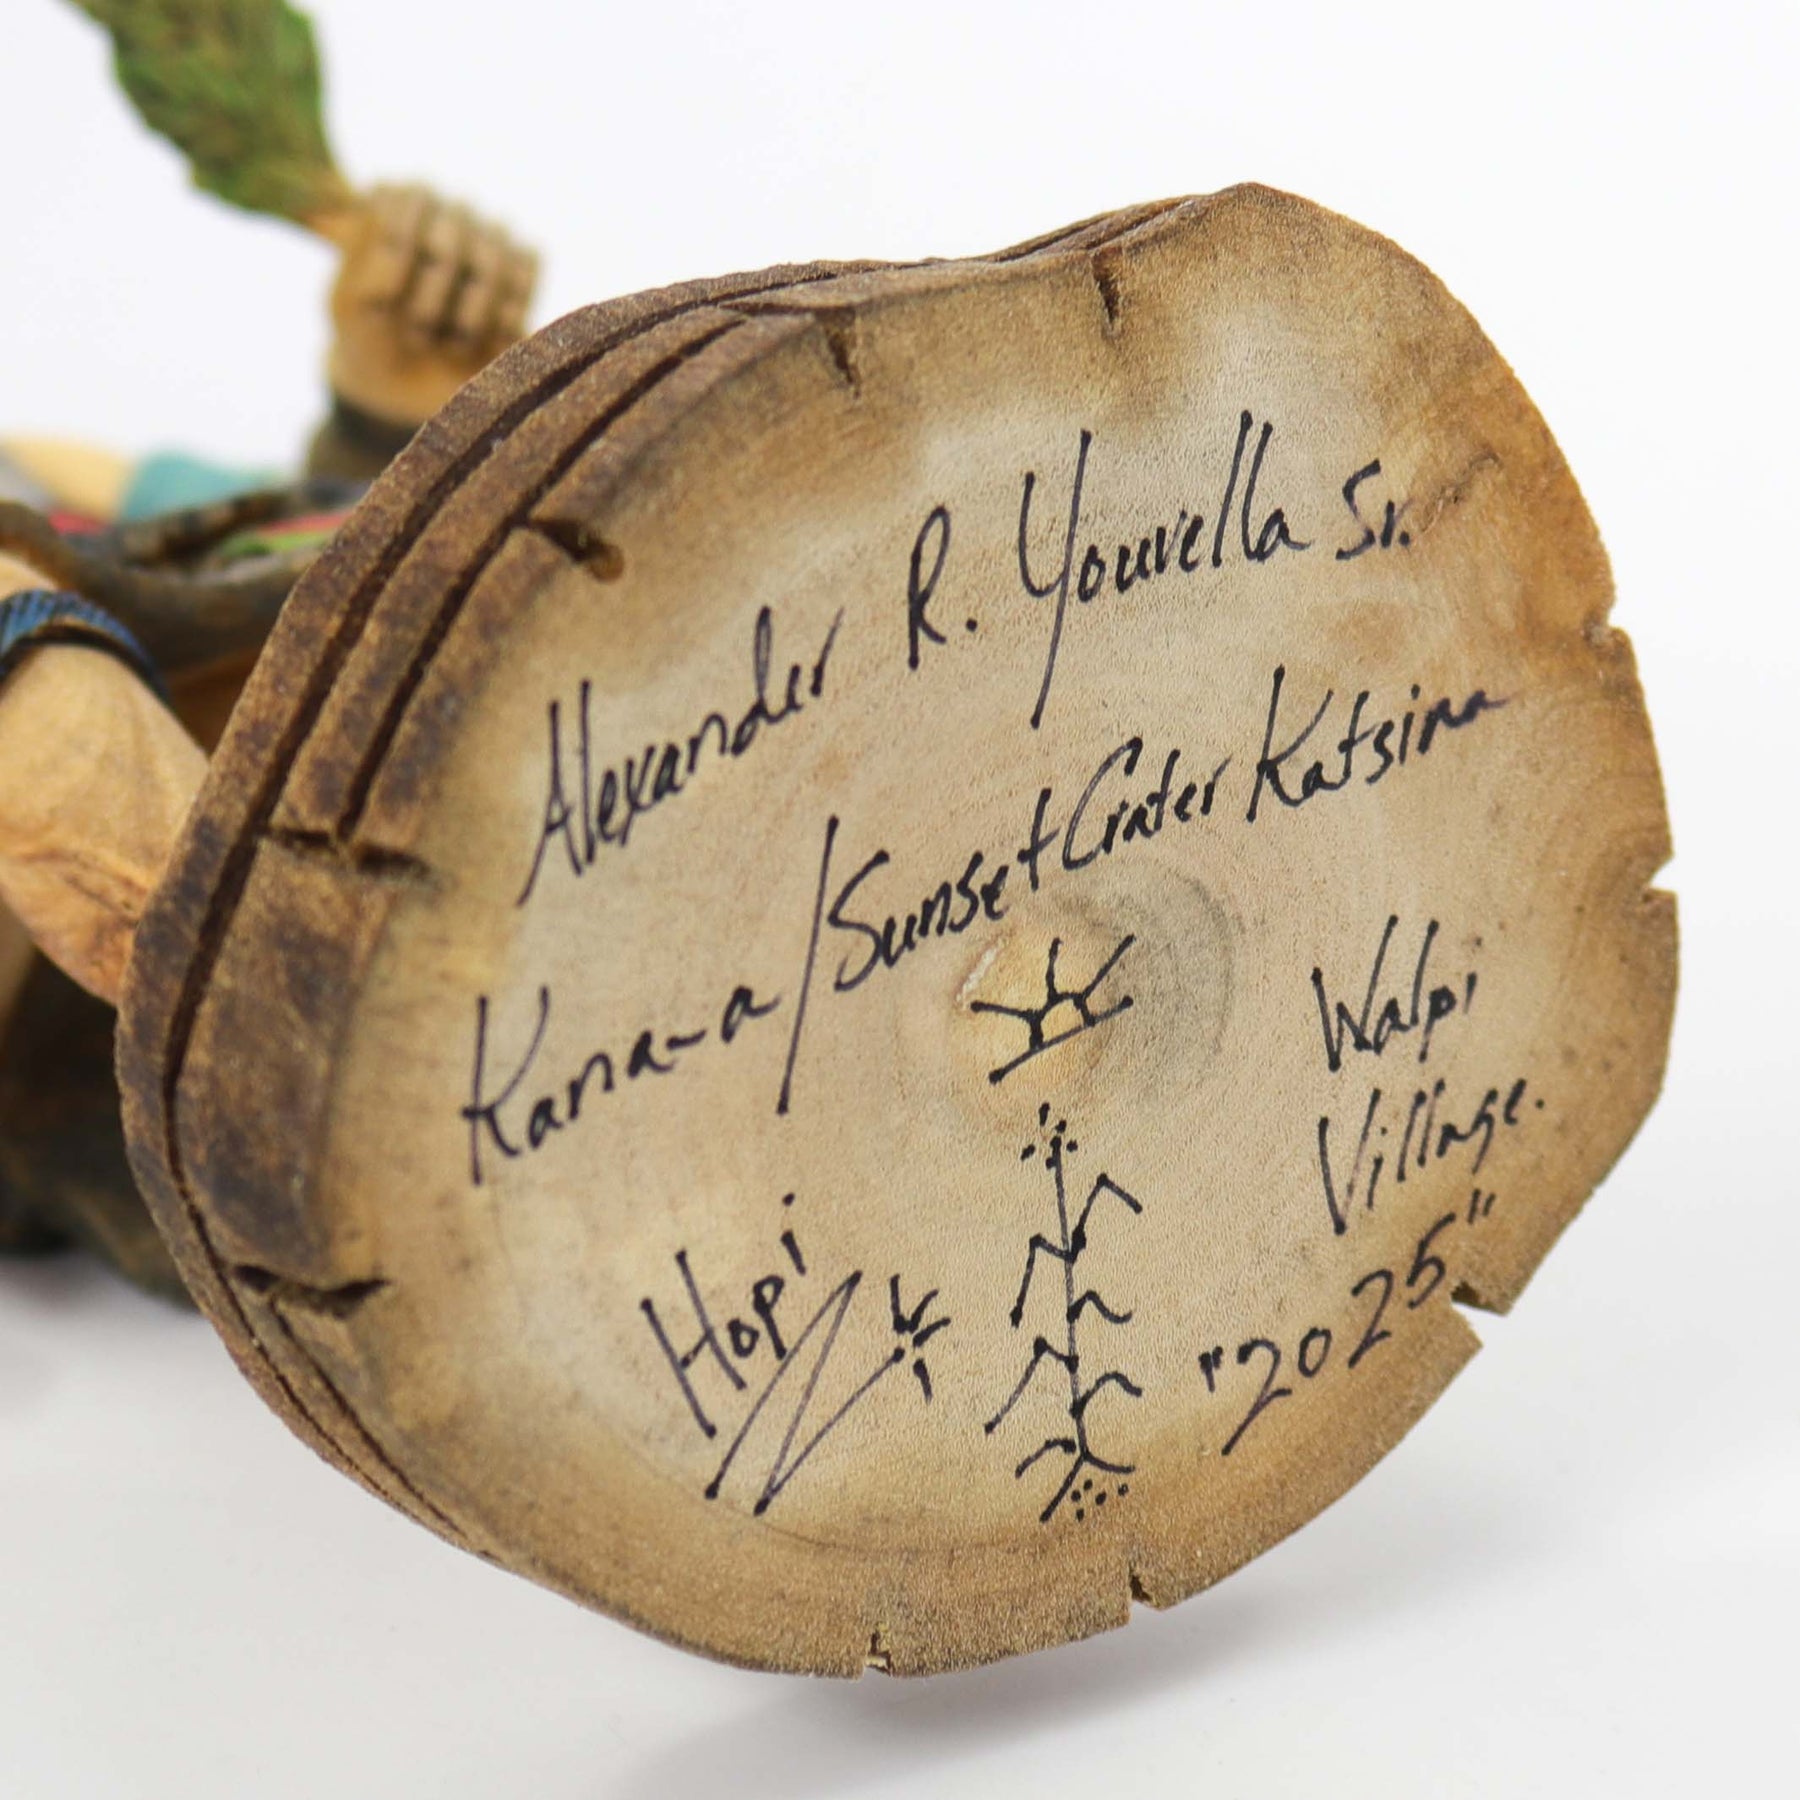 Alexander R. Youvella Sr.
Kana-a/Sunset Crater Katsina
Hopi
Walpi
Village.
"2025"